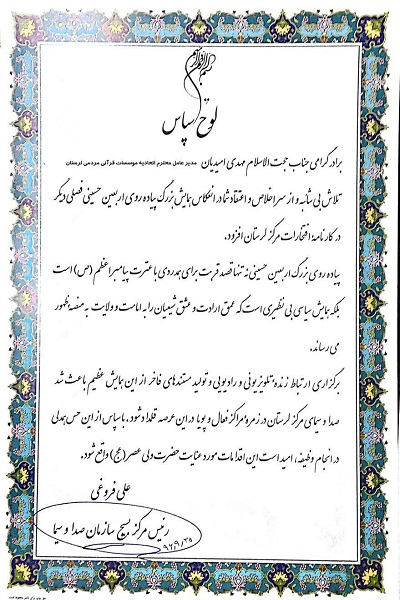 بسم الله الرحمن الرحیم
لوح سپاس
برادر گرامی جناب حجت الاسلام مهدی امیدیان مدیر عامل محترم اتحادیه موسسات قرآنی مردمی لرستان
تلاش بی شائبه و از سر اخلاص و اعتقاد شما در انعکاس همایش بزرگ پیاده روی اربعین حسینی فصلی دیگر
در کارنامهٔ افتخارات مرکز لرستان افزود.
پیاده روی بزرگ اربعین حسینی نه تنها قصد قربت برای همدردی با عترت پیامبر اعظم (ص) است
بلکه همایش سیاسی بی نظیری است که عمق ارادت و عشق شیعیان را به امامت و ولایت به منصهٔ ظهور
می رساند.
برگزاری ارتباط زنده تلویزیونی و رادیویی و تولید مستندهای فاخر از این همایش عظیم باعث شد
صدا و سیمای مرکز لرستان در زمرهٔ مراکز فعال و پویا در این عرصه قلمداد شود. با سپاس از این حس همدلی
در انجام وظیفه، امید است این اقدامات مورد عنایت حضرت ولی عصر (عج) واقع شود.
علی فروغی
رئیس مرکز بسیج سازمان صدا و سیما
۹۶/۹/۲۵